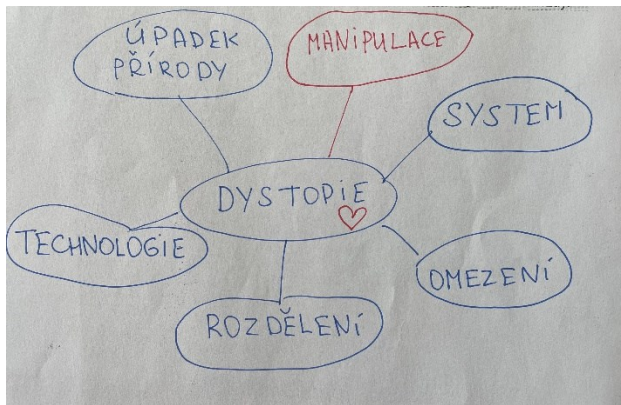 ÚPADEK
PŘÍRODY
MANIPULACE
SYSTEM
DYSTOPIE
TECHNOLOGIE
OMEZENÍ
ROZDĚLENÍ